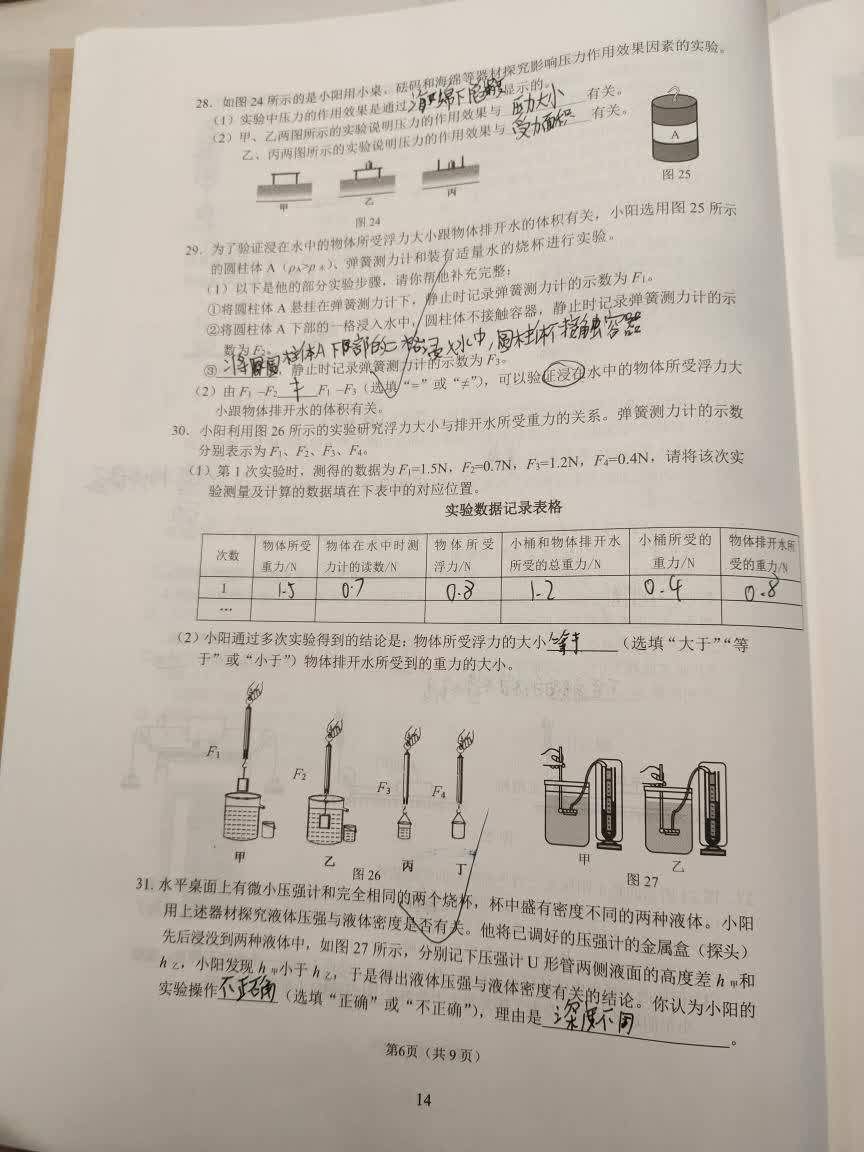 28. 如图 24 所示的是小阳用小桌、砝码和海绵等器材探究影响压力作用效果因素的实验。
(1)实验中压力的作用效果是通过海绵下陷显示的。
(2)甲、乙两图所示的实验说明压力的作用效果与 压力大小 有关。
乙、丙两图所示的实验说明压力的作用效果与 受力面积 有关。
甲 乙 丙
图 24
A
图 25
29. 为了验证浸在水中的物体所受浮力大小跟物体排开水的体积有关,小阳选用图 25 所示
的圆柱体 A(ρA>ρ水)、弹簧测力计和装有适量水的烧杯进行实验。
(1)以下是他的部分实验步骤,请你帮他补充完整:
①将圆柱体 A 悬挂在弹簧测力计下,静止时记录弹簧测力计的示数为 F₁。
②将圆柱体 A 下部的一格浸入水中,圆柱体不接触容器,静止时记录弹簧测力计的示
数为 F₂。
③将圆柱体A下部的二格浸入水中,圆柱体不接触容器
静止时记录弹簧测力计的示数为 F₃。
(2)由 F₁ –F₂ ≠ F₁ –F₃(选填“=”或“≠”),可以验证浸在水中的物体所受浮力大
小跟物体排开水的体积有关。
30. 小阳利用图 26 所示的实验研究浮力大小与排开水所受重力的关系。弹簧测力计的示数
分别表示为 F₁、F₂、F₃、F₄。
(1)第 1 次实验时,测得的数据为 F₁=1.5N,F₂=0.7N,F₃=1.2N,F₄=0.4N,请将该次实
验测量及计算的数据填在下表中的对应位置。
实验数据记录表格
次数 物体所受重力/N 物体在水中时测力计的读数/N 物体所受浮力/N 小桶和物体排开水所受的总重力/N 小桶所受的重力/N 物体排开水所受的重力/N
1 1.5 0.7 0.8 1.2 0.4 0.8
…
(2)小阳通过多次实验得到的结论是:物体所受浮力的大小 等于 (选填“大于”“等
于”或“小于”)物体排开水所受到的重力的大小。
F₁ F₂ F₃ F₄
甲 乙 丙 丁
图 26
甲 乙
图 27
31. 水平桌面上有微小压强计和完全相同的两个烧杯,杯中盛有密度不同的两种液体。小阳
用上述器材探究液体压强与液体密度是否有关。他将已调好的压强计的金属盒(探头)
先后浸没到两种液体中,如图 27 所示,分别记下压强计 U 形管两侧液面的高度差 h甲和
h乙,小阳发现 h甲小于 h乙,于是得出液体压强与液体密度有关的结论。你认为小阳的
实验操作 不正确 (选填“正确”或“不正确”),理由是 深度不同 。
第6页(共 9 页)
14